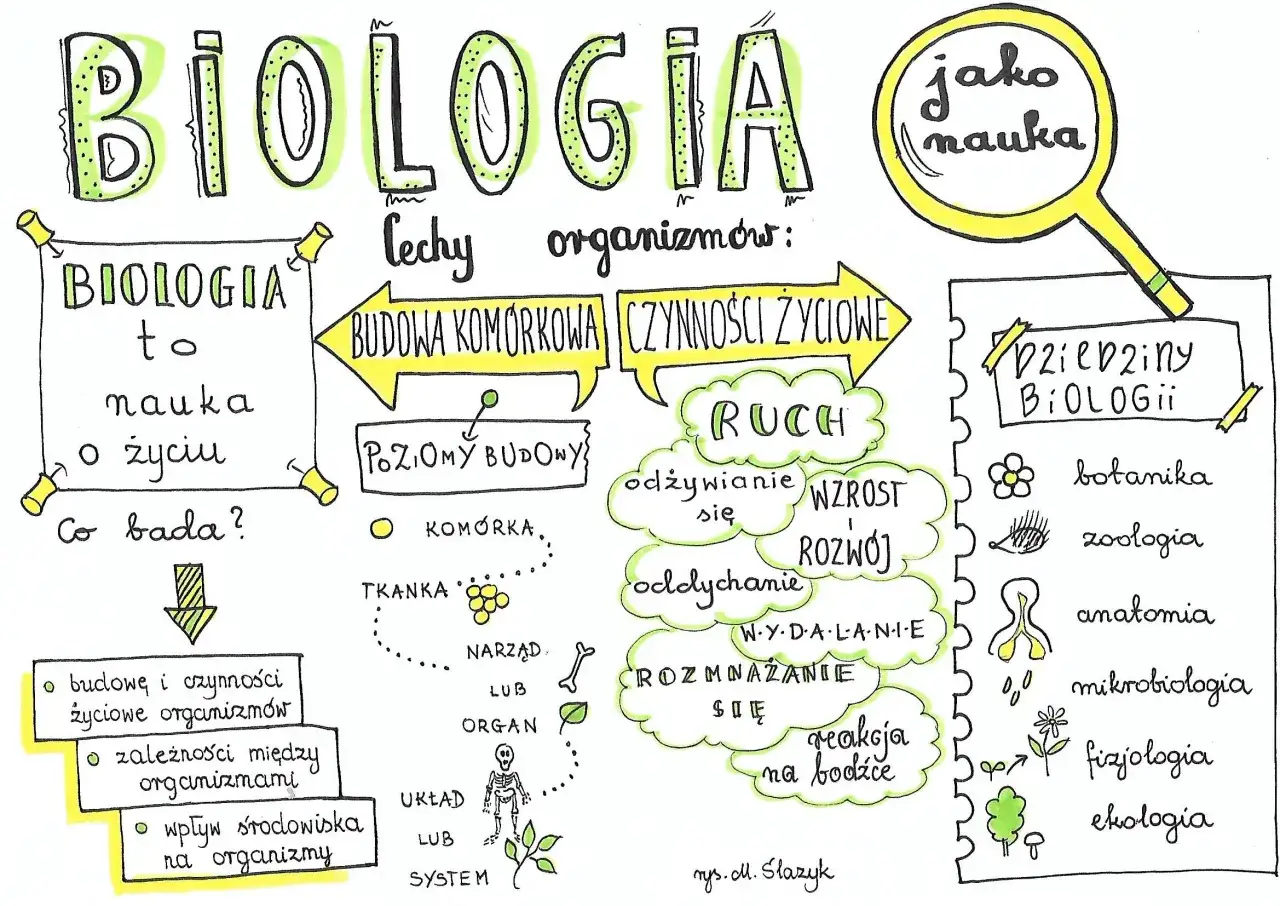 BIOLOGIA
jako
nauka
BIOLOGIA
to
nauka
o życiu
Co bada?
budowę i czynności
życiowe organizmów
zależności między
organizmami
wpływ środowiska
na organizmy
Cechy organizmów:
BUDOWA KOMÓRKOWA
CZYNNOŚCI ŻYCIOWE
POZIOMY BUDOWY
KOMÓRKA
TKANKA
NARZĄD
LUB
ORGAN
UKŁAD
LUB
SYSTEM
RUCH
odżywianie
się
WZROST
i
ROZWÓJ
oddychanie
W·Y·D·A·L·A·N·I·E
ROZMNAŻANIE
SIĘ
reakcja
na bodźce
rys. M. Ślazyk
DZIEDZINY
BiOLOGii
botanika
zoologia
anatomia
mikrobiologia
fizjologia
ekologia